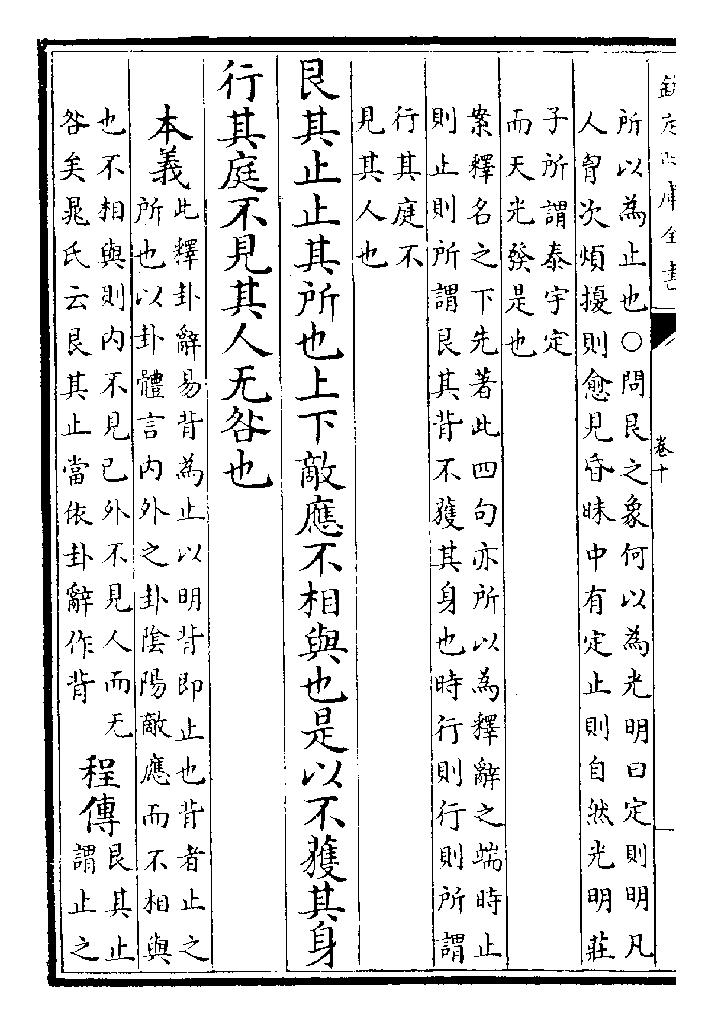 欽定四庫全書
卷十
所以為止也○問艮之象何以為光明曰定則明凡
人胷次煩擾則愈見昏昧中有定止則自然光明莊
子所謂泰宇定
而天光發是也
案釋名之下先著此四句亦所以為釋辭之端時止
則止則所謂艮其背不獲其身也時行則行則所謂
行其庭不
見其人也
艮其止止其所也上下敵應不相與也是以不獲其身
行其庭不見其人无咎也
本義
此釋卦辭易背為止以明背即止也背者止之
所也以卦體言內外之卦陰陽敵應而不相與
也不相與則內不見已外不見人而无
咎矣晁氏云艮其止當依卦辭作背
程傳
艮其止
謂止之